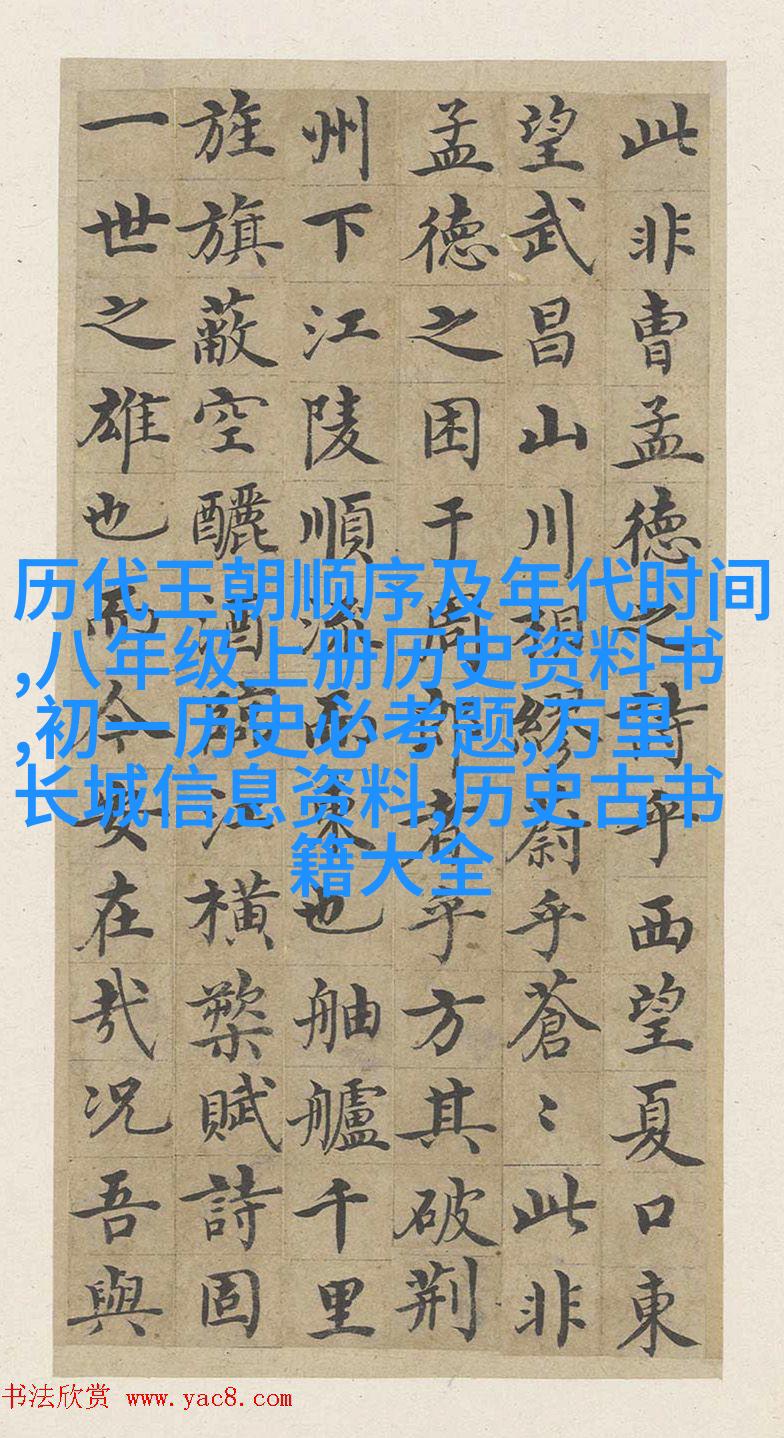 此非曹孟德之詩乎西望夏口東
望武昌山川相繆蔚乎蒼〻此非
孟德之困于周郎者乎方其破荆
州下江陵順流而東也舳艫千里
旌旗蔽空釃酒臨江横槊賦詩固
一世之雄也而今安在哉况吾與
历代王朝顺序及年代时间
,八年级上册历史资料书
,初一历史必考题,万里
长城信息资料,历史古书
籍大全
书法欣赏 www.yac8.com